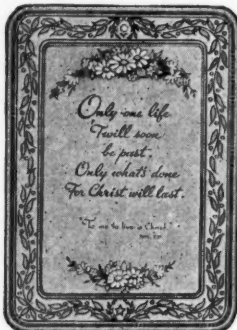 Only one life
'Twill soon
be past.
Only what's done
For Christ will last.
"To me to live is Christ"